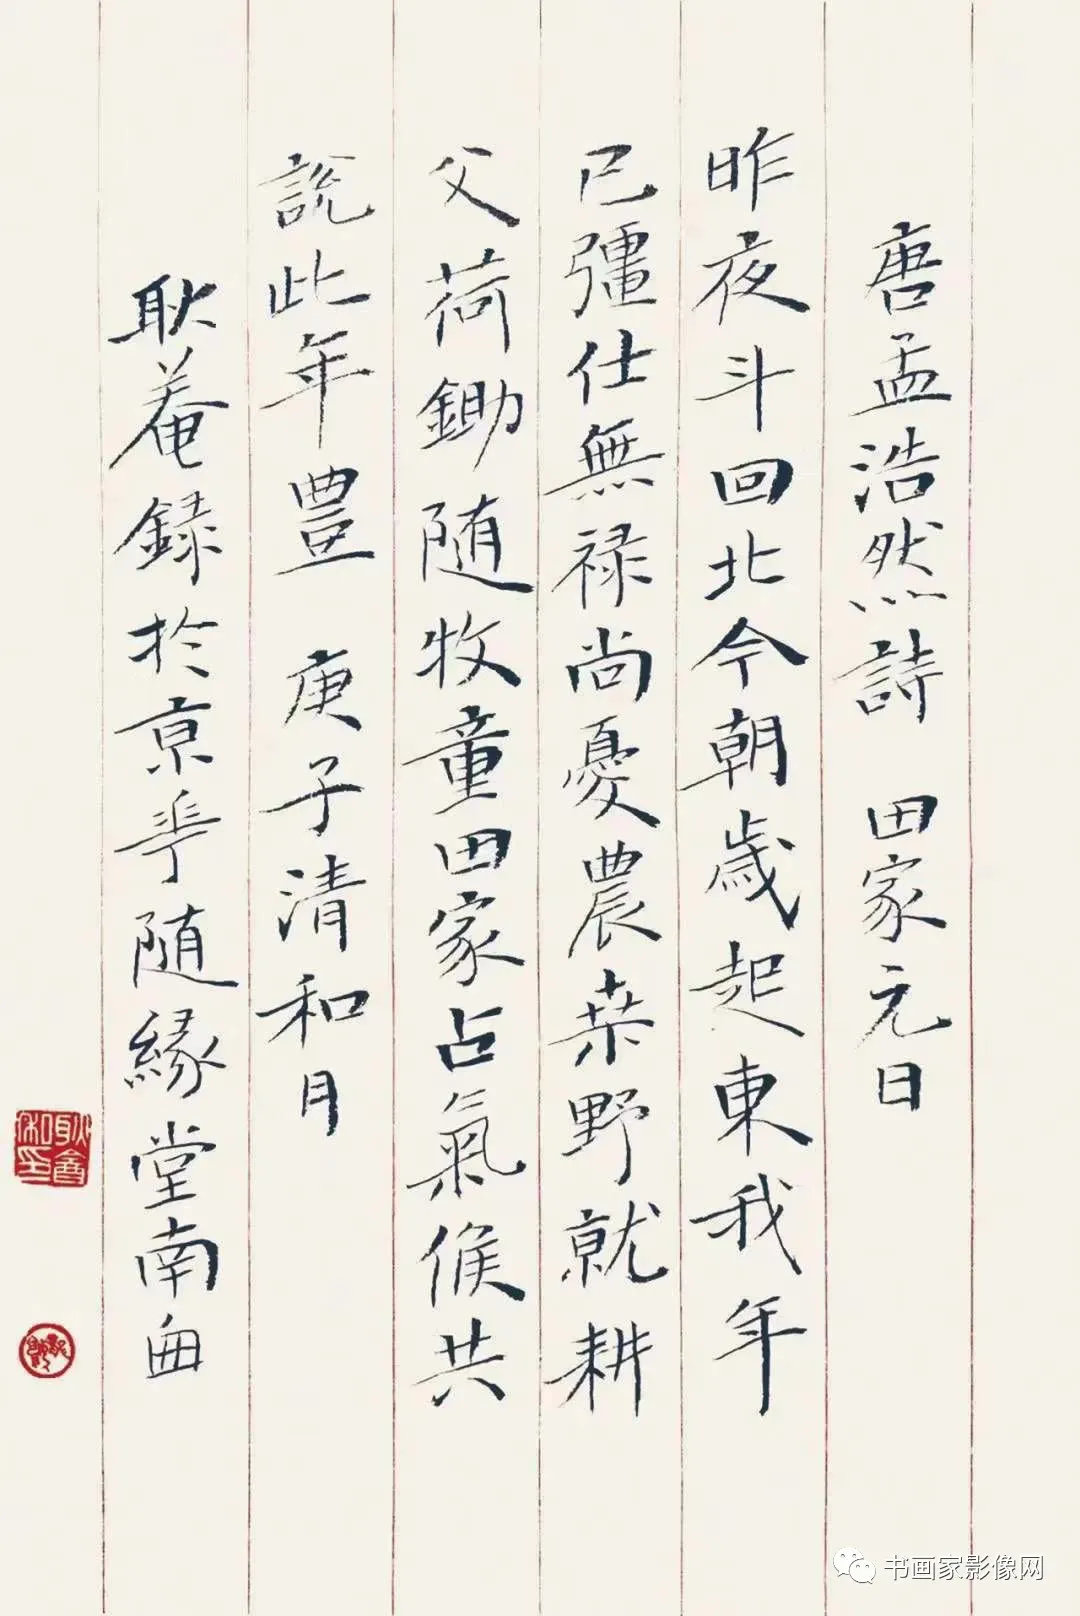 唐孟浩然詩 田家元日
昨夜斗回北今朝歲起東我年
已彊仕無禄尚憂農桒野就耕
父荷鋤随牧童田家占氣候共
説此年豊 庚子清和月
耿菴録於京華随緣堂南窗
书画家影像网